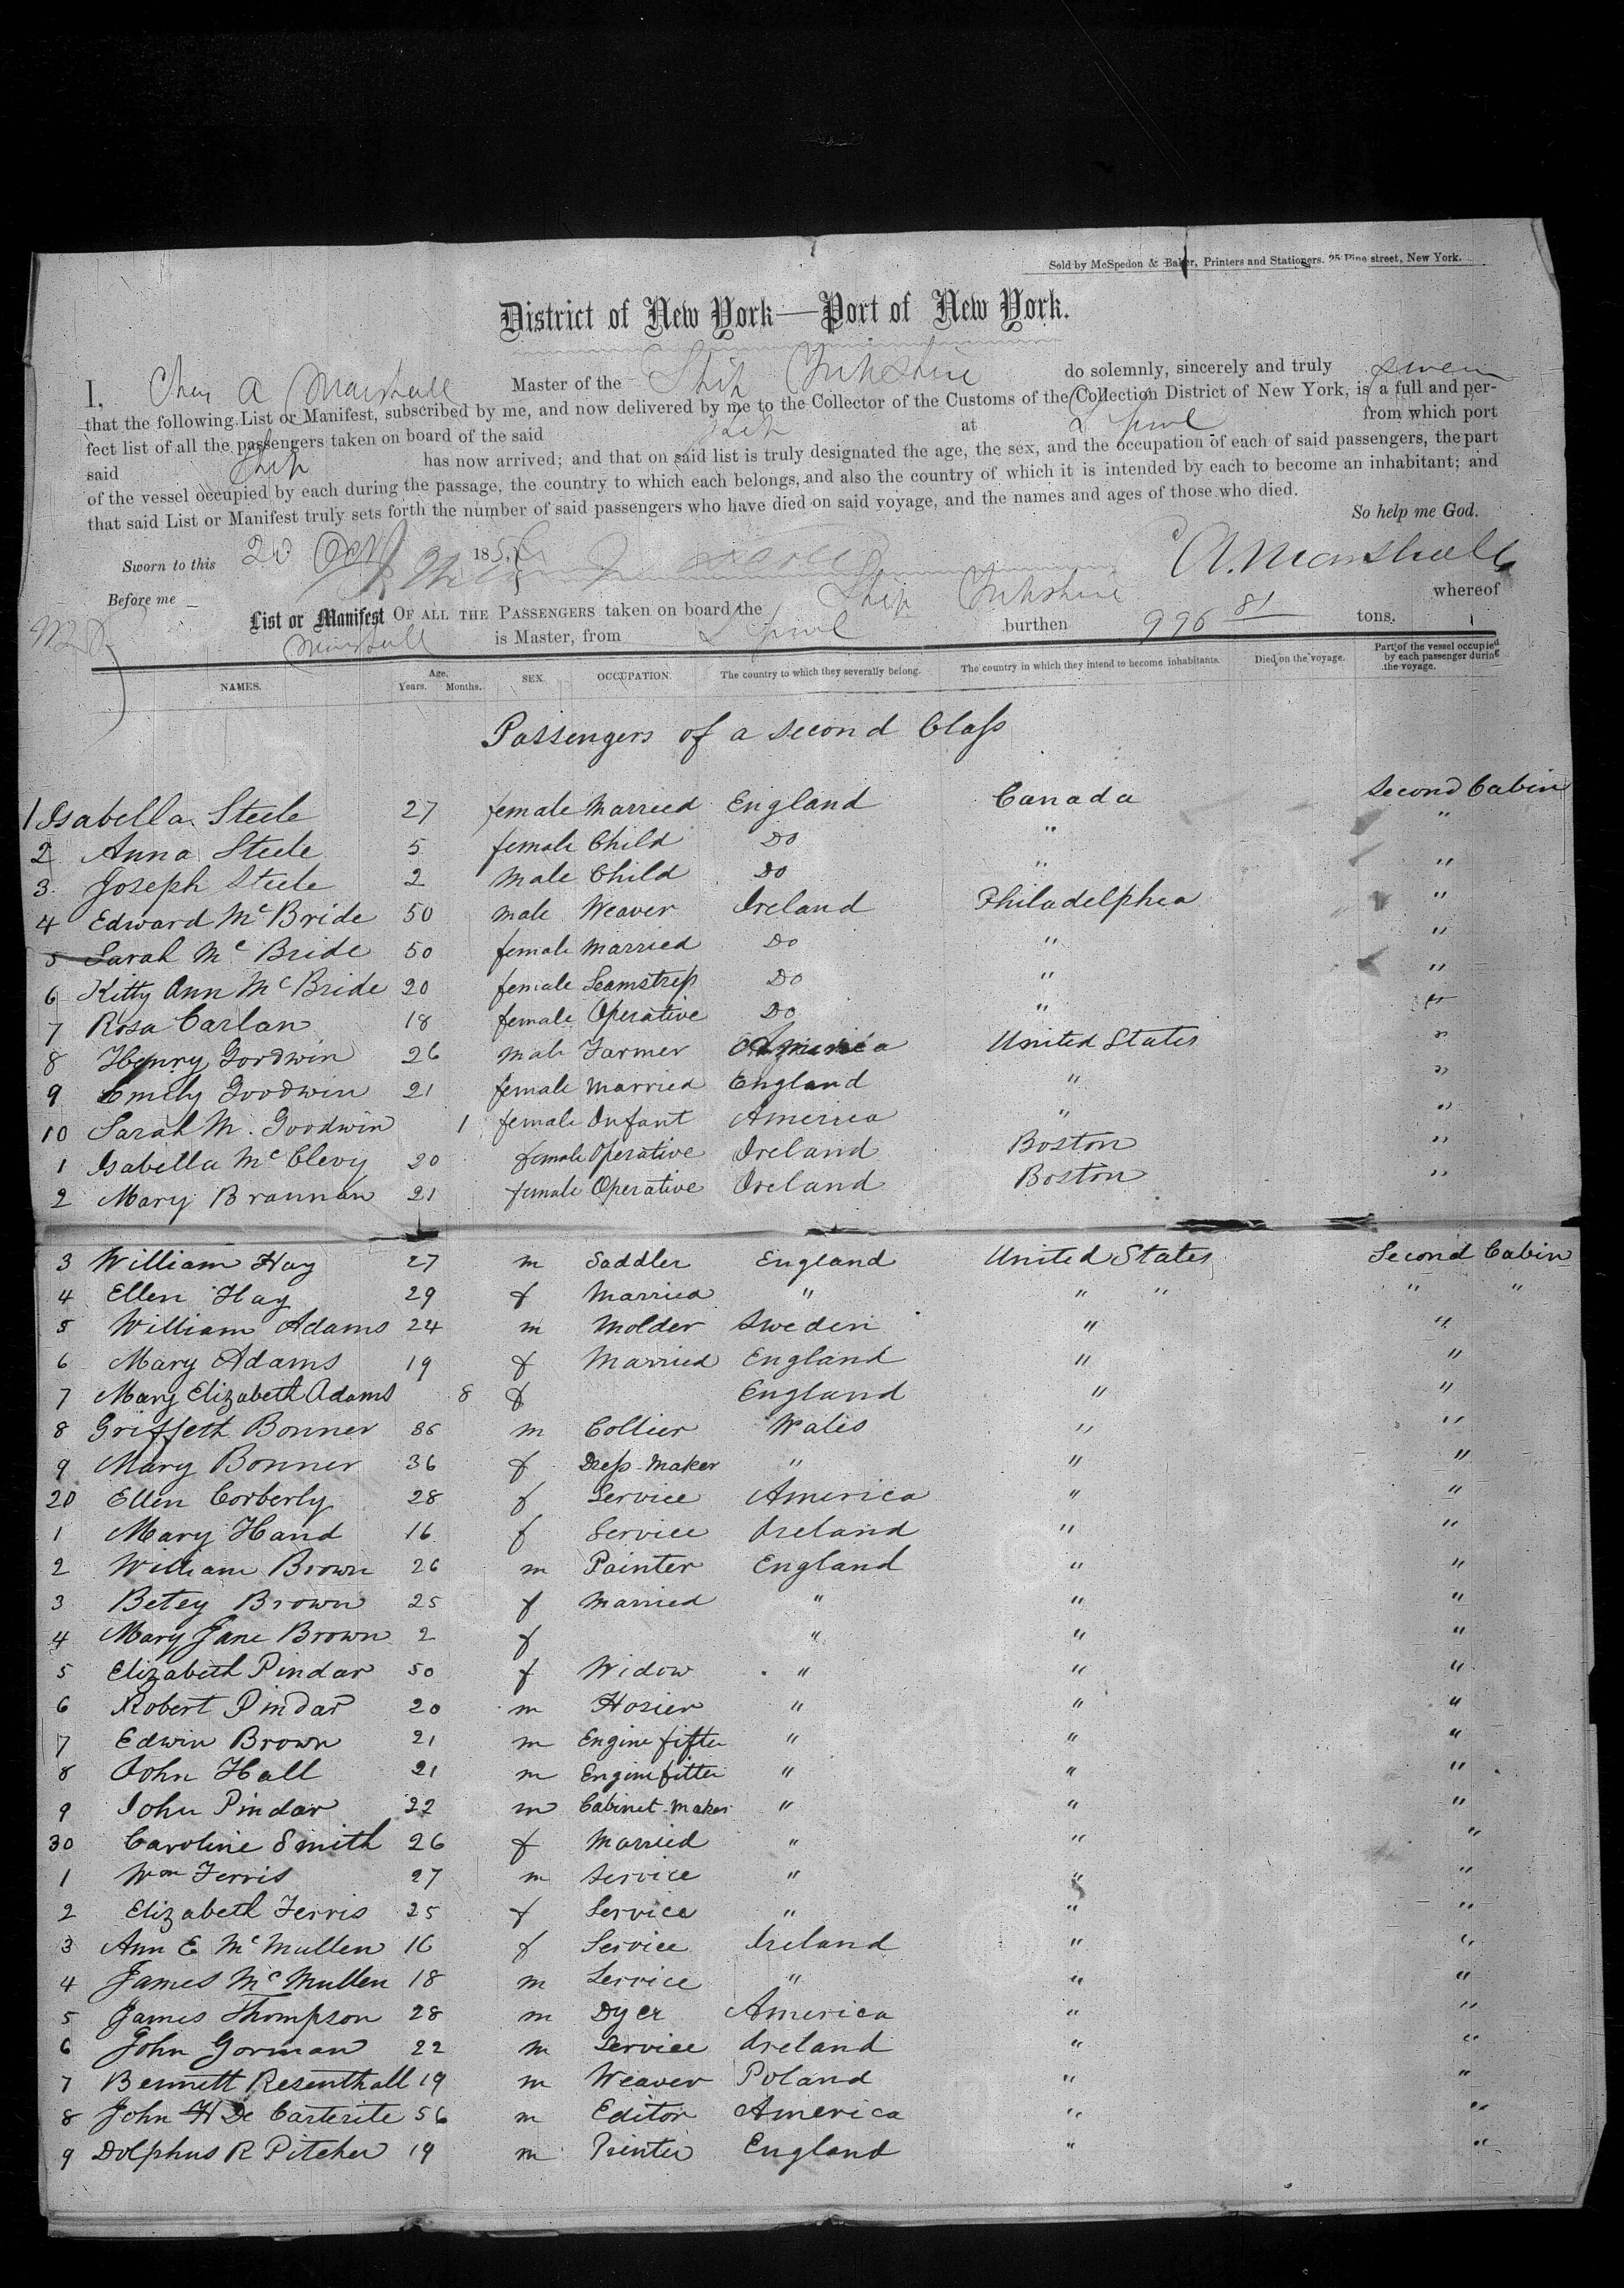 Sold by McSpedon & Baker, Printers and Stationers, 25 Pine street, New York.
District of New York—Port of New York.
I, Chas A Marshall Master of the Ship Yorkshire do solemnly, sincerely and truly swear
that the following List or Manifest, subscribed by me, and now delivered by me to the Collector of the Customs of the Collection District of New York, is a full and per-
fect list of all the passengers taken on board of the said Ship at L pool from which port
said Ship has now arrived; and that on said list is truly designated the age, the sex, and the occupation of each of said passengers, the part
of the vessel occupied by each during the passage, the country to which each belongs, and also the country of which it is intended by each to become an inhabitant; and
that said List or Manifest truly sets forth the number of said passengers who have died on said voyage, and the names and ages of those who died.
So help me God.
Sworn to this 20 Oct 185 C A. Marshall
Before me
List or Manifest OF ALL THE PASSENGERS taken on board the Ship Yorkshire whereof
Marshall is Master, from L pool burthen 996 81 tons.
NAMES. Age. Years. Months. SEX. OCCUPATION. The country to which they severally belong. The country in which they intend to become inhabitants. Died on the voyage. Part of the vessel occupied by each passenger during the voyage.
Passengers of a second Class
1 Isabella Steele 27 female Married England Canada Second Cabin
2 Anna Steele 5 female Child Do " "
3 Joseph Steele 2 male Child Do " "
4 Edward Mc Bride 50 male Weaver Ireland Philadelphia "
5 Sarah Mc Bride 50 female Married Do " "
6 Kitty Ann Mc Bride 20 female Seamstress Do " "
7 Rosa Carlan 18 female Operative Do " "
8 Henry Goodwin 26 male Farmer America United States "
9 Emily Goodwin 21 female Married England " "
10 Sarah M. Goodwin 1 female Infant America " "
1 Isabella Mc Clevy 20 female Operative Ireland Boston "
2 Mary Brannan 21 female Operative Ireland Boston "
3 William Hay 27 m Saddler England United States Second Cabin
4 Ellen Hay 29 f Married " " " " "
5 William Adams 24 m Molder Sweden " "
6 Mary Adams 19 f Married England " "
7 Mary Elizabeth Adams 8 f England " "
8 Griffeth Bonner 36 m Collier Wales " "
9 Mary Bonner 36 f Dress-Maker " " "
20 Ellen Corberly 28 f Service America " "
1 Mary Hand 16 f Service Ireland " "
2 William Brown 26 m Painter England " "
3 Betey Brown 25 f Married " " "
4 Mary Jane Brown 2 f " " "
5 Elizabeth Pindar 50 f Widow " " "
6 Robert Pindar 20 m Hosier " " "
7 Edwin Brown 21 m Engine fitter " " "
8 John Hall 21 m Engine fitter " " "
9 John Pindar 22 m Cabinet-Maker " " "
30 Caroline Smith 26 f Married " " "
1 Wm Ferris 27 m Service " " "
2 Elizabeth Ferris 25 f Service " " "
3 Ann E Mc Mullen 16 f Service Ireland " "
4 James Mc Mullen 18 m Service " " "
5 James Thompson 28 m Dyer America " "
6 John Gorman 22 m Service Ireland " "
7 Bennett Resenthall 19 m Weaver Poland " "
8 John H De Carterite 56 m Editor America " "
9 Dolphus R Pitcher 19 m Printer England " "